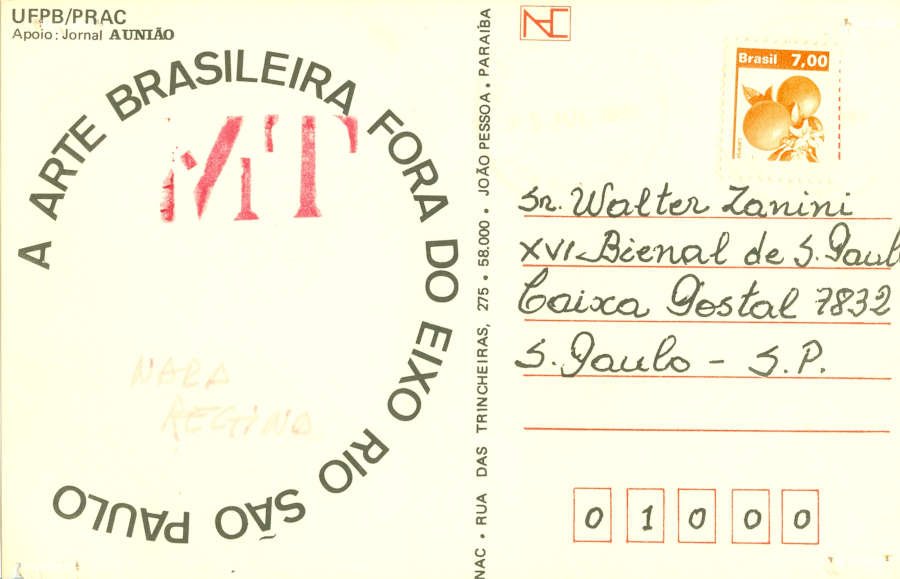 UFPB/PRAC
Apoio: Jornal A UNIÃO
A ARTE BRASILEIRA FORA DO EIXO RIO SÃO PAULO
MT
NARA
REGINA
NAC • RUA DAS TRINCHEIRAS, 275 • 58.000 • JOÃO PESSOA • PARAÍBA
NAC
Brasil 7,00
Sr. Walter Zanini
XVI-Bienal de S. Paul
Caixa Postal 7832
S. Paulo - S.P.
0 1 0 0 0